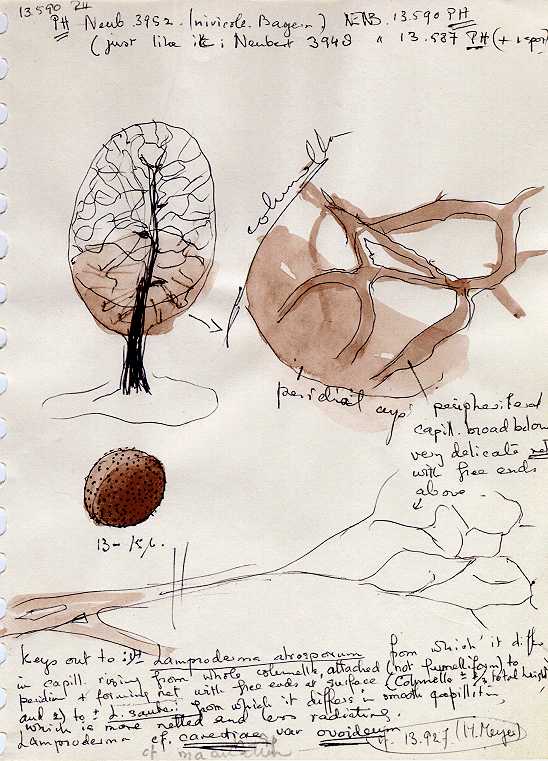 13590 24
PH Neub 3952. (nivicole. Bayern) N.NB. 13.590 PH
(just like it: Neubert 3948 " 13.587 PH (+ 1 spor
columella
peridial cup
peripheral
capill. broad below
very delicate net
with free ends
above
13–15/.
Keys out to 1st Lamproderma atrosporum from which it differs
in capill. rising from whole columella, attached (not funneliform) to
peridium & forming net with free ends at surface (Columella ± ½ total height
and 2) to ± L. sauteri from which it differs in smooth capillitium,
which is more netted and less radiating.
Lamproderma cf. carestiae var ovoideum
cf. 13.927 (M.Meyer)